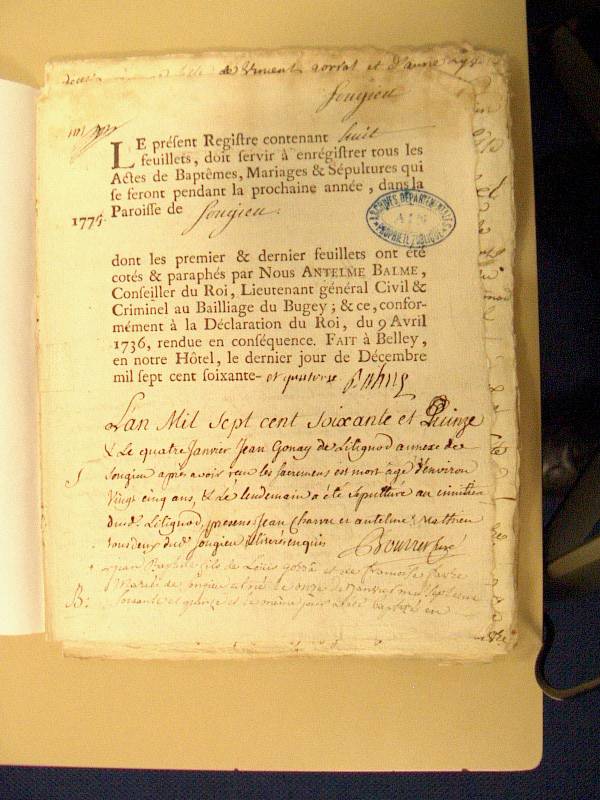 de Vincent gorrat et d'anne
Songieu
LE présent Registre contenant huit
feuillets, doit servir à enrégistrer tous les
Actes de Baptêmes, Mariages & Sépultures qui
se feront pendant la prochaine année, dans la
1775. Paroisse de Songieu.
ARCHIVES DÉPARTEMENTALES
AIN
PROPRIÉTÉ PUBLIQUE
dont les premier & dernier feuillets ont été
cotés & paraphés par Nous ANTELME BALME,
Conseiller du Roi, Lieutenant général Civil &
Criminel au Bailliage du Bugey; & ce, confor-
mément à la Déclaration du Roi, du 9 Avril
1736, rendue en conséquence. FAIT à Belley,
en notre Hôtel, le dernier jour de Décembre
mil sept cent soixante- et quatorze Balme
L'an Mil Sept cent soixante et Quinze
& Le quatre Janvier Jean Gonay de Lilignod annexe de
S Songieu après avoir reçu les sacremens est mort âgé d'environ
Vingt cinq ans, & Le lendemain a été sepulturé au cimitière
dudt Lilignod, presens Jean Charvet et antelme Mathieu
tous deux dudt Songieu illiterés enquis Bourrer curé
jean Baptiste fils de Louis et de françoise favre
mariés de Songieu est né Le onze de Janvier mil sept cent
B: soixante et quinze et le même jour a été baptisé en